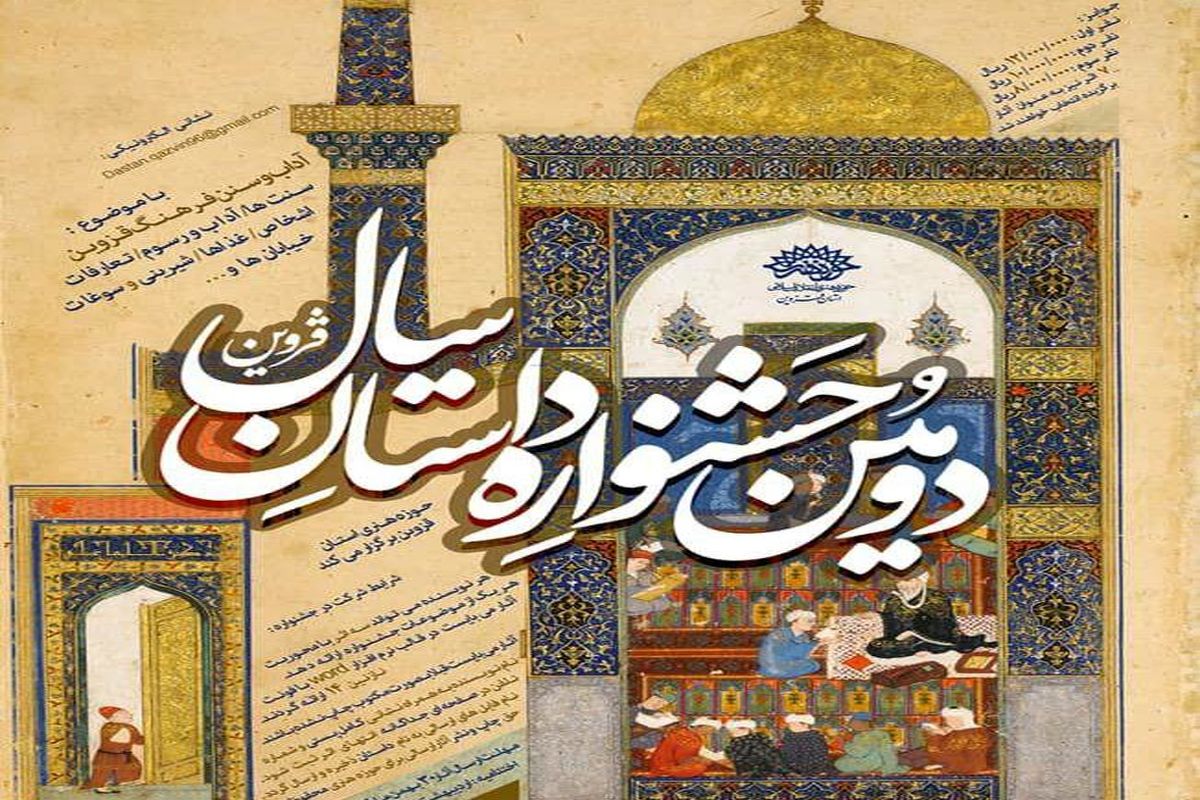 جوایز:
نفر اول: ۱۲/۰۰۰/۰۰۰ ریال
نفر دوم: ۱۰/۰۰۰/۰۰۰ ریال
نفر سوم: ۸/۰۰۰/۰۰۰ ریال
۷ اثر نیز به عنوان آثار
برگزیده انتخاب خواهند شد
نشانی الکترونیکی:
Dastan.qazvin96@gmail.com
با موضوع:
آداب و سنن فرهنگ قزوین
سنت ها/ آداب و رسوم/ تعارفات
اشخاص/ غذاها/ شیرینی و سوغات
خیابان ها و...
حوزه هنری
استان قزوین
دومین جشنواره داستان سیال
قزوین
حوزه هنری استان
قزوین برگزار می کند
شرایط شرکت در جشنواره:
هر نویسنده می تواند سه اثر با محوریت
هر یک از موضوعات جشنواره ارائه دهد
آثار می بایست در قالب نرم افزار word با فونت
نازنین ۱۴ ارائه گردند